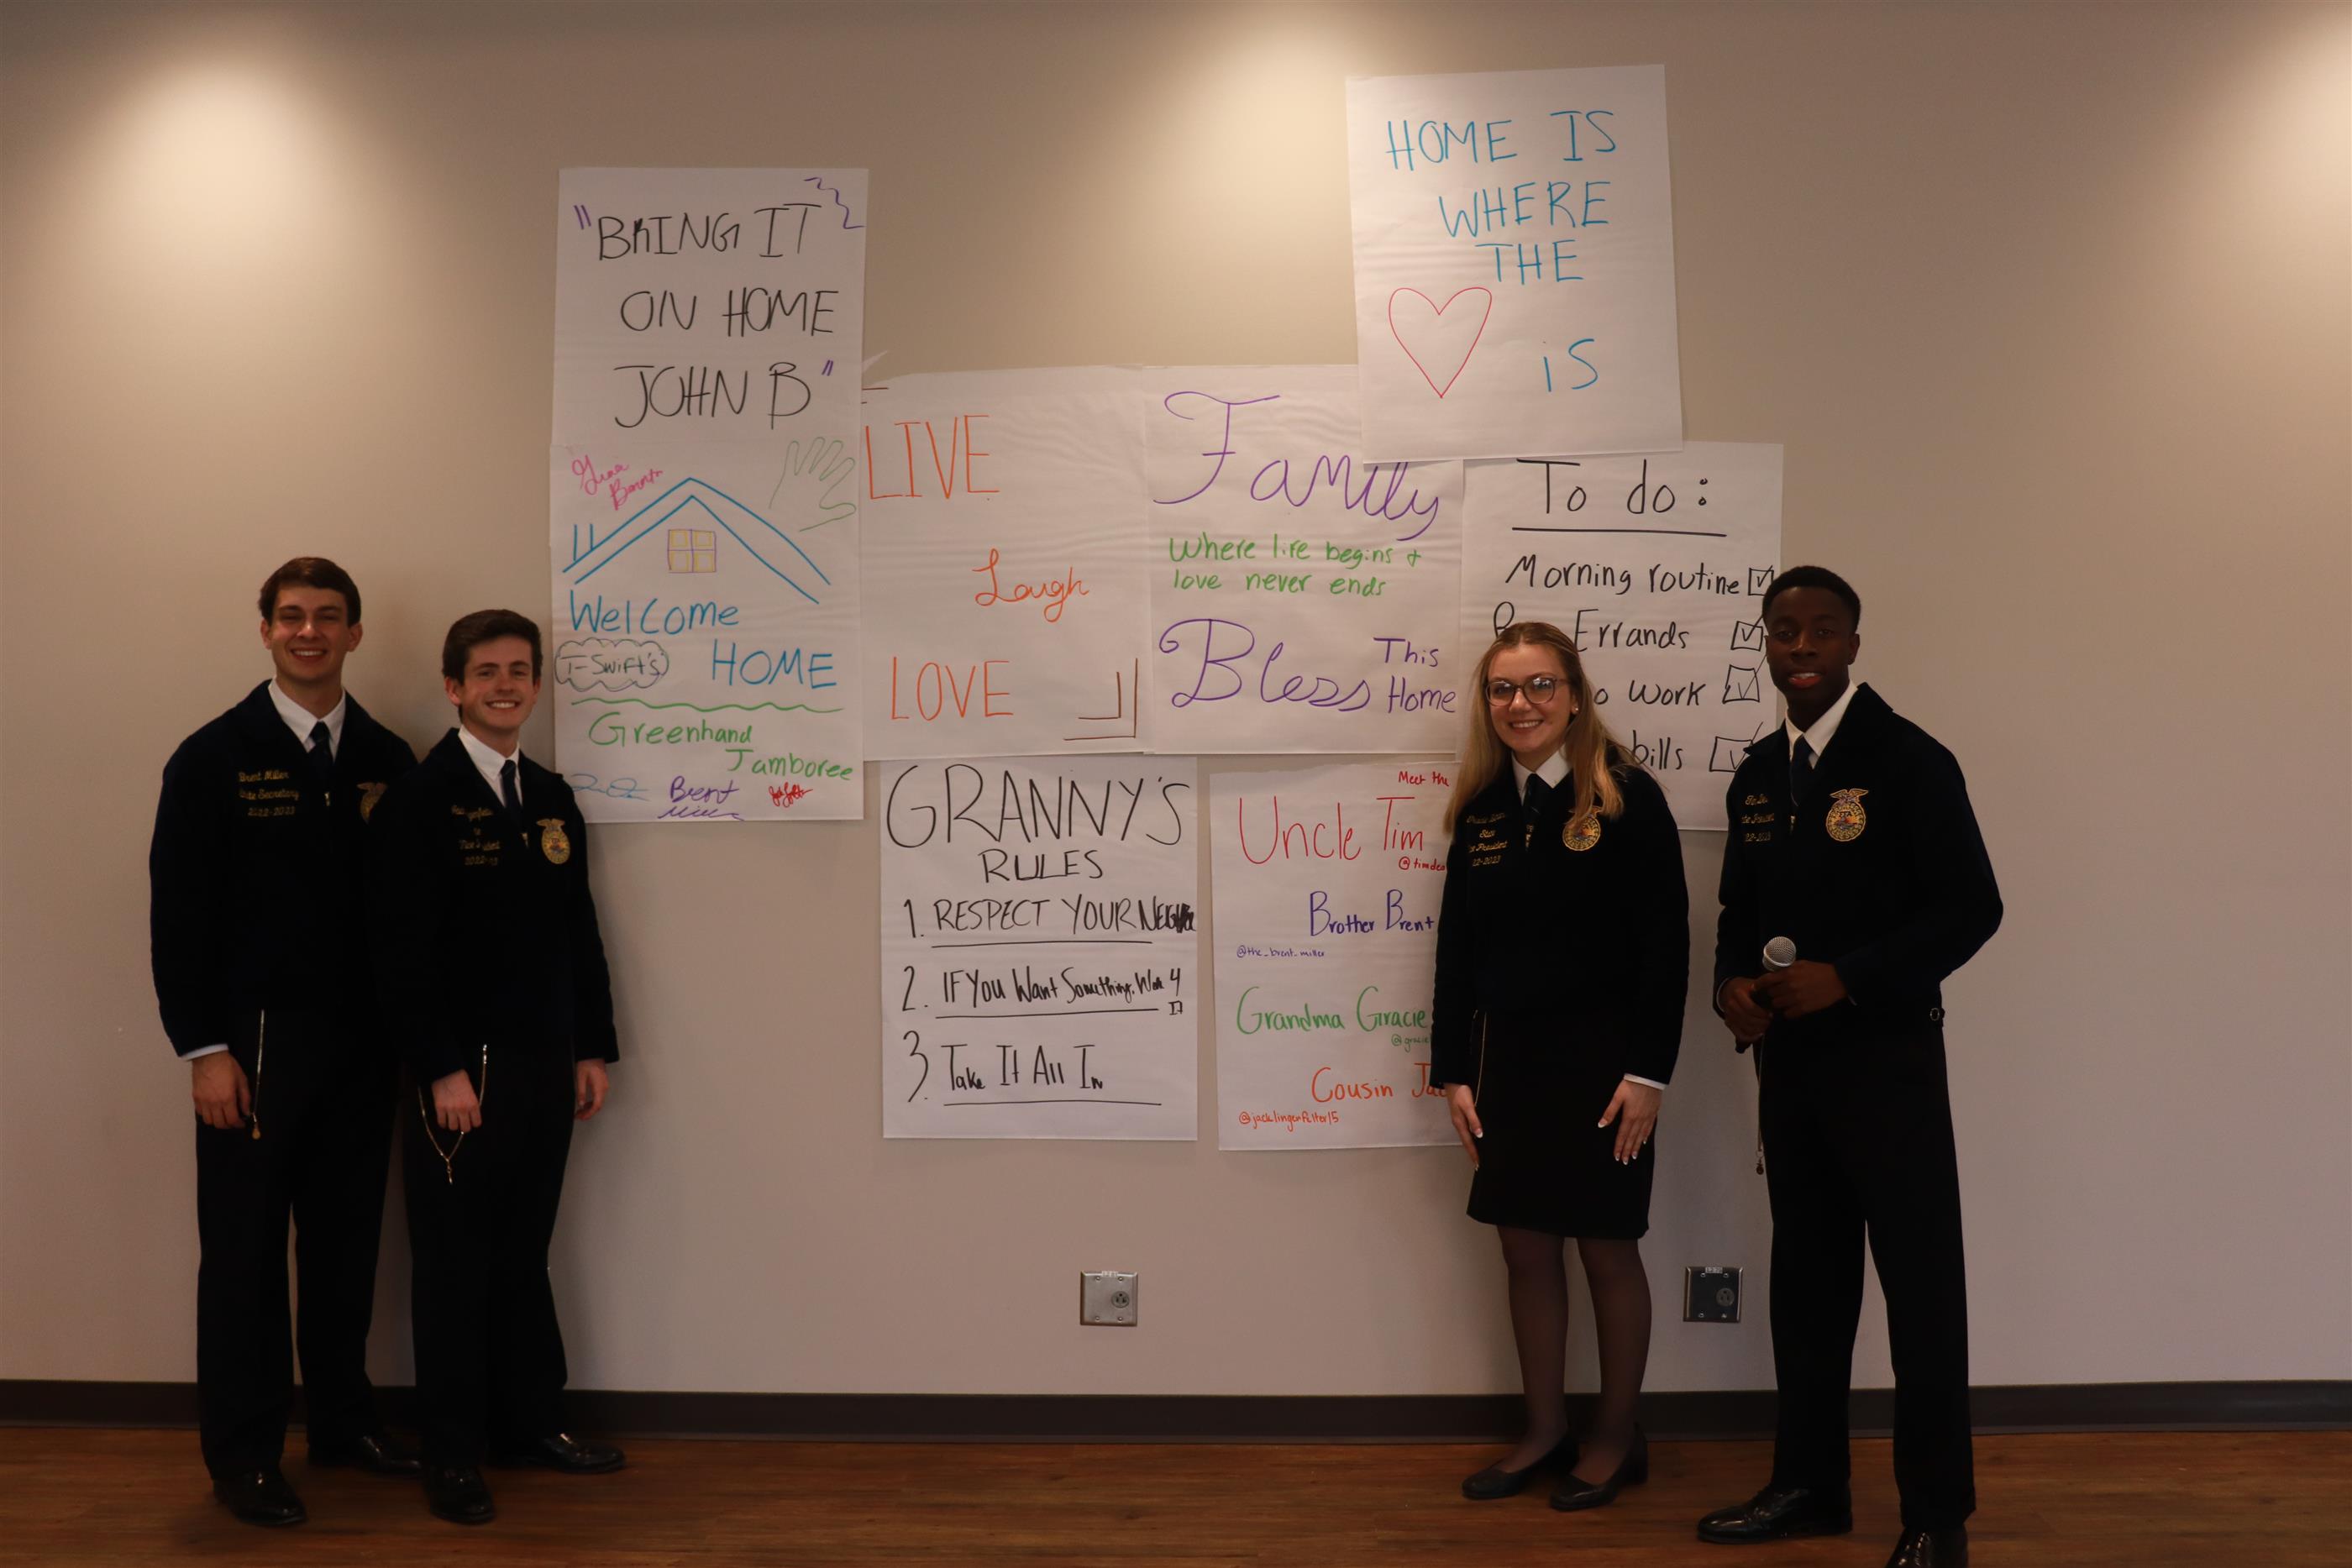 "BRING IT
ON HOME
JOHN B"
Welcome
T-Swift's HOME
Greenhand
Jamboree
Brent
LIVE
Laugh
LOVE
Family
Where life begins &
love never ends
Bless This
Home
HOME IS
WHERE
THE
iS
To do:
Morning routine
Errands
Work
bills
GRANNY'S
RULES
1. RESPECT YOUR
2. IF YOU Want Something, Work 4
IT
3. Take It All In
Meet the
Uncle Tim
Brother Brent
@the_brent_miller
Grandma Gracie
Cousin
@jacklingenfelter15
Brent Miller
State Secretary
2022-2023
State
Vice President